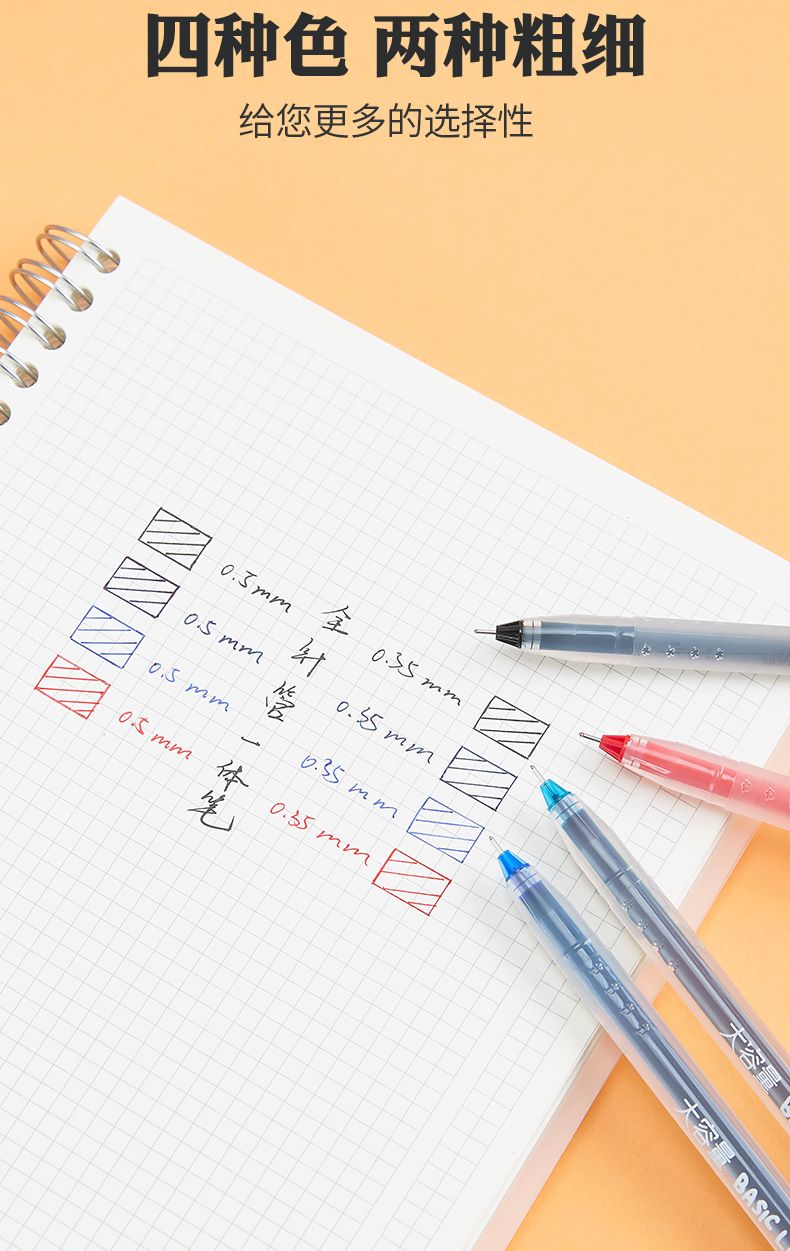 四种色 两种粗细
给您更多的选择性
0.5mm
0.5mm
0.5mm
0.5mm
全针管一体笔
0.35mm
0.35mm
0.35mm
0.35mm
大容量
大容量 BASIC